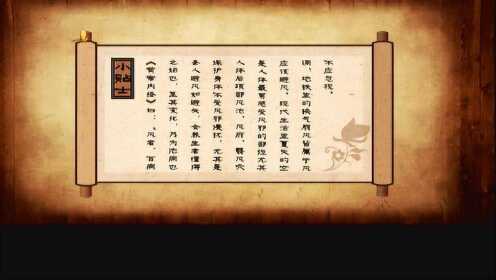 小贴士
《黄帝内经》曰:“风者,百病
之始也,至其变化,乃为他病也
人避风如避矢,会养生者懂得
保护身体不受风邪侵扰,尤其是
人体后项部风池、风府、翳风穴
是人体最易感受风邪的部位尤其
应须避风,现代生活里夏天的空
调,地铁里的换气扇风皆属于风
不应忽视。